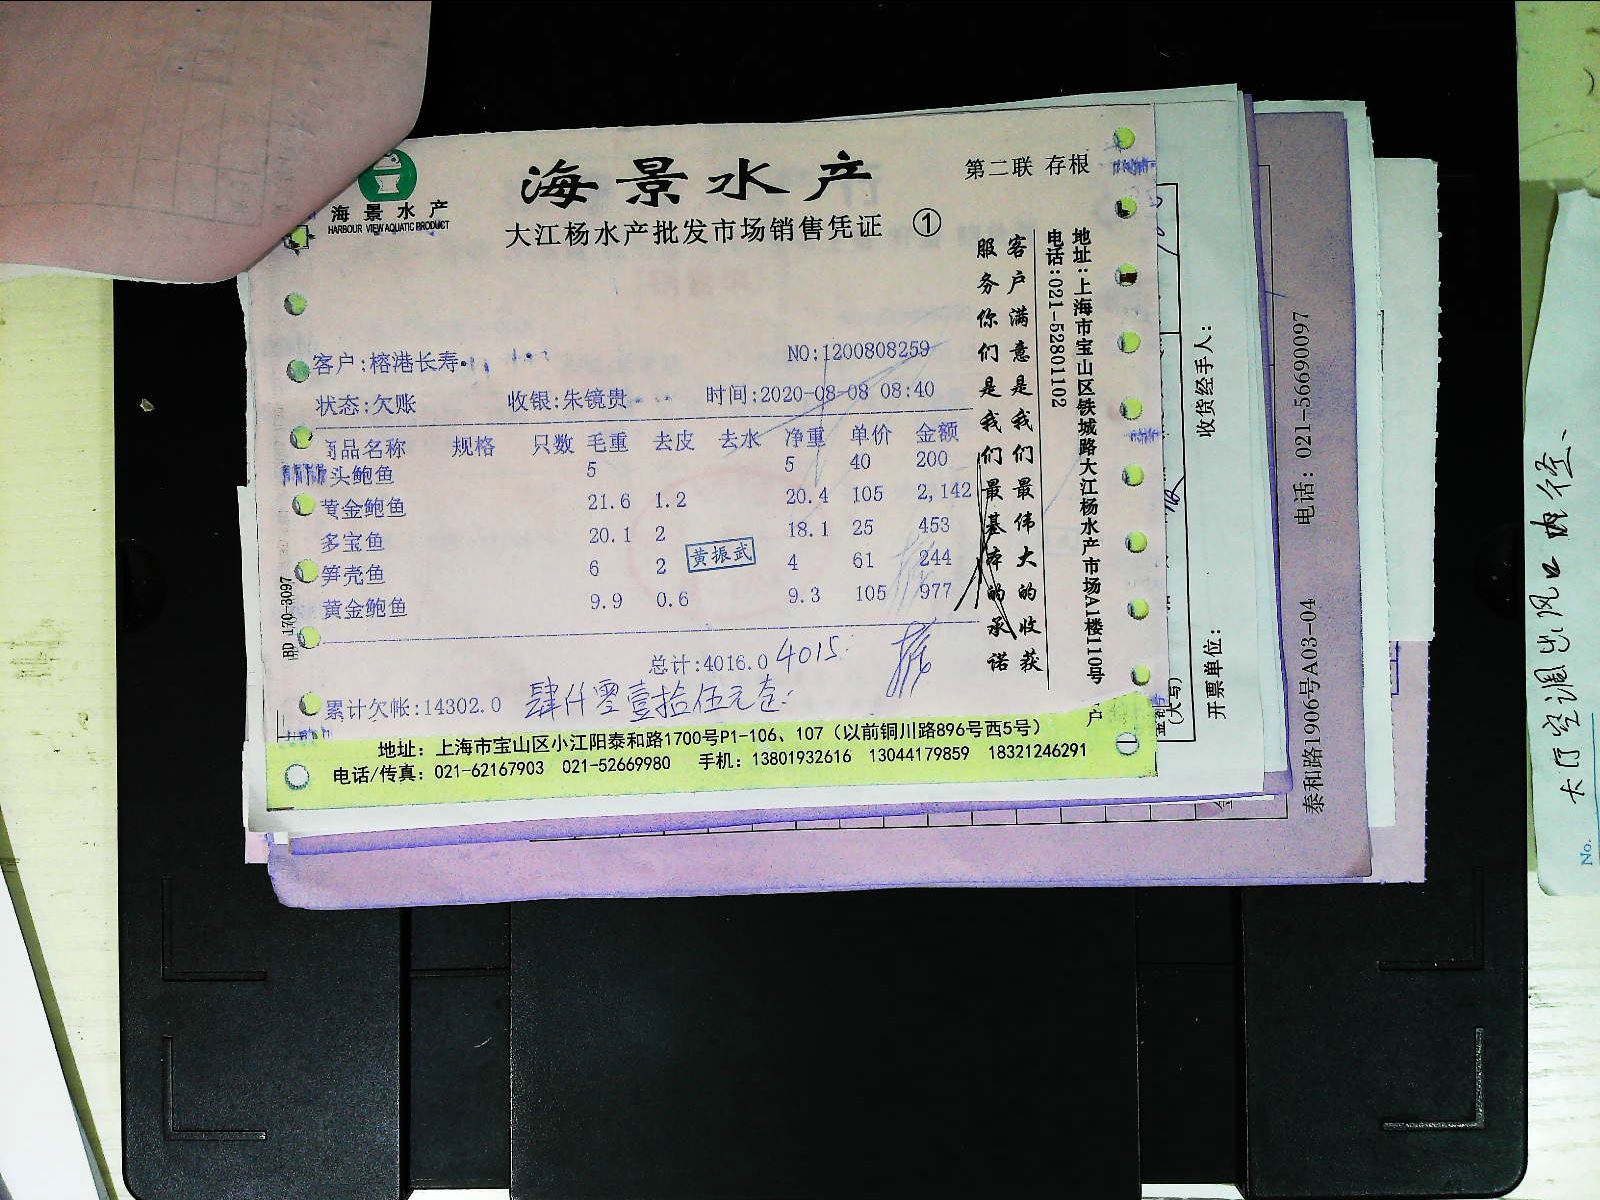 海景水产
HARBOUR VIEW AQUATIC PRODUCT
海景水产
第二联 存根
大江杨水产批发市场销售凭证 ①
客户:榕港长寿
NO:1200808259
状态:欠账 收银:朱镜贵 时间:2020-08-08 08:40
商品名称 规格 只数 毛重 去皮 去水 净重 单价 金额
头鲍鱼 5 5 40 200
黄金鲍鱼 21.6 1.2 20.4 105 2,142
多宝鱼 20.1 2 18.1 25 453
笋壳鱼 6 2 4 61 244
黄金鲍鱼 9.9 0.6 9.3 105 977
黄振武
总计:4016.0 4015
累计欠帐:14302.0 肆仟零壹拾伍元
客户满意是我们最伟大的收获
服务你们是我们最基本的承诺
地址:上海市宝山区铁城路大江杨水产市场A1楼110号
电话:021-52801102
BD 170-3097
地址：上海市宝山区小江阳泰和路1700号P1-106、107（以前铜川路896号西5号）
电话/传真：021-62167903 021-52669980 手机：13801932616 13044179859 18321246291
户
(大写)
收货经手人：
开票单位：
泰和路1906号A03-04 电话：021-56690097
大厅空调出风口内径
No.